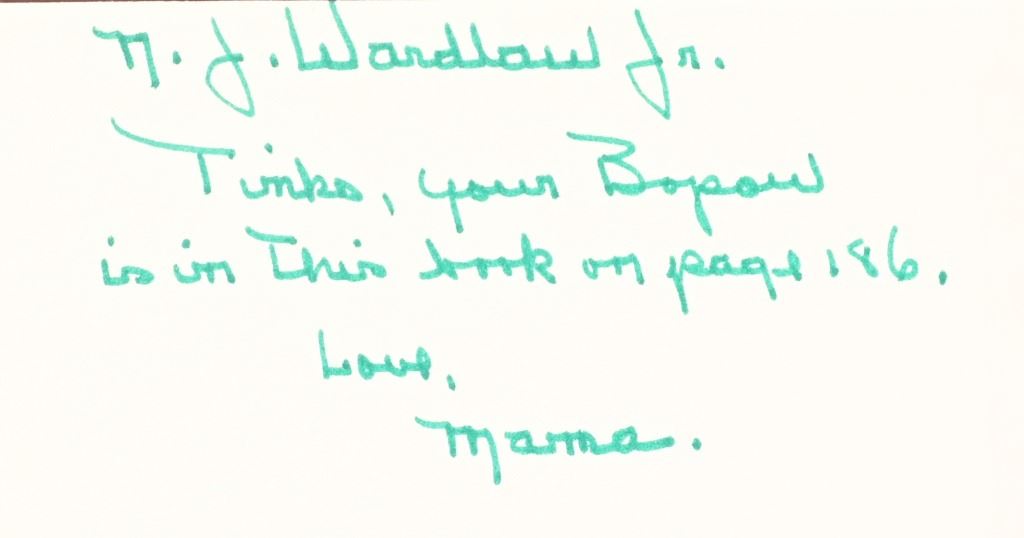 N. J. Wardlaw Jr.
Tinks, your Bopow
is in this book on page 186.
Love,
Mama.